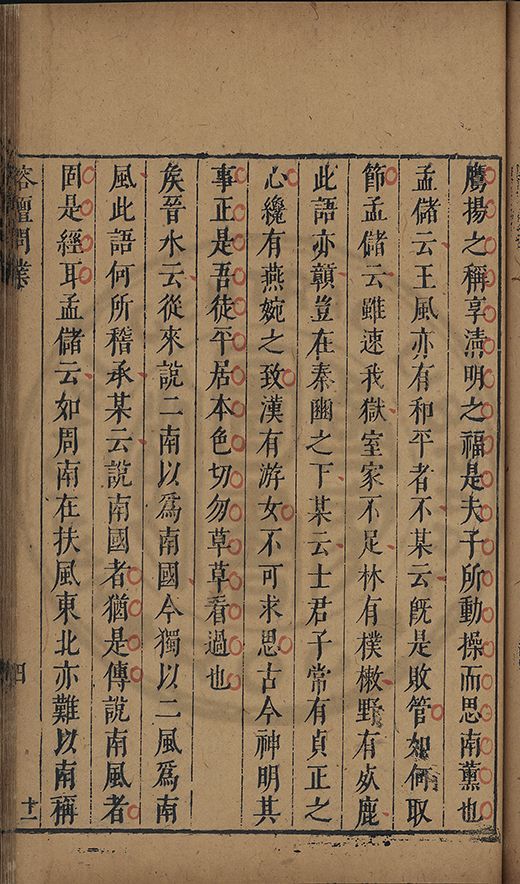 鷹揚之稱享淸明之福是夫子所動操而思南薰也
孟儲云王風亦有和平者不某云旣是敗管如何取
節孟儲云雖速我獄室家不足林有樸樕野有死鹿
此語亦顛豈在秦豳之下某云士君子常有貞正之
心纔有燕婉之致漢有游女不可求思古今神明其
事正是吾徒平居本色切勿草草看過也
矣晉水云從來説二南以爲南國今獨以二風爲南
風此語何所稽承某云説南國者猶是傳説南風者
固是經耳孟儲云如周南在扶風東北亦難以南稱
榕壇問業
四
十二